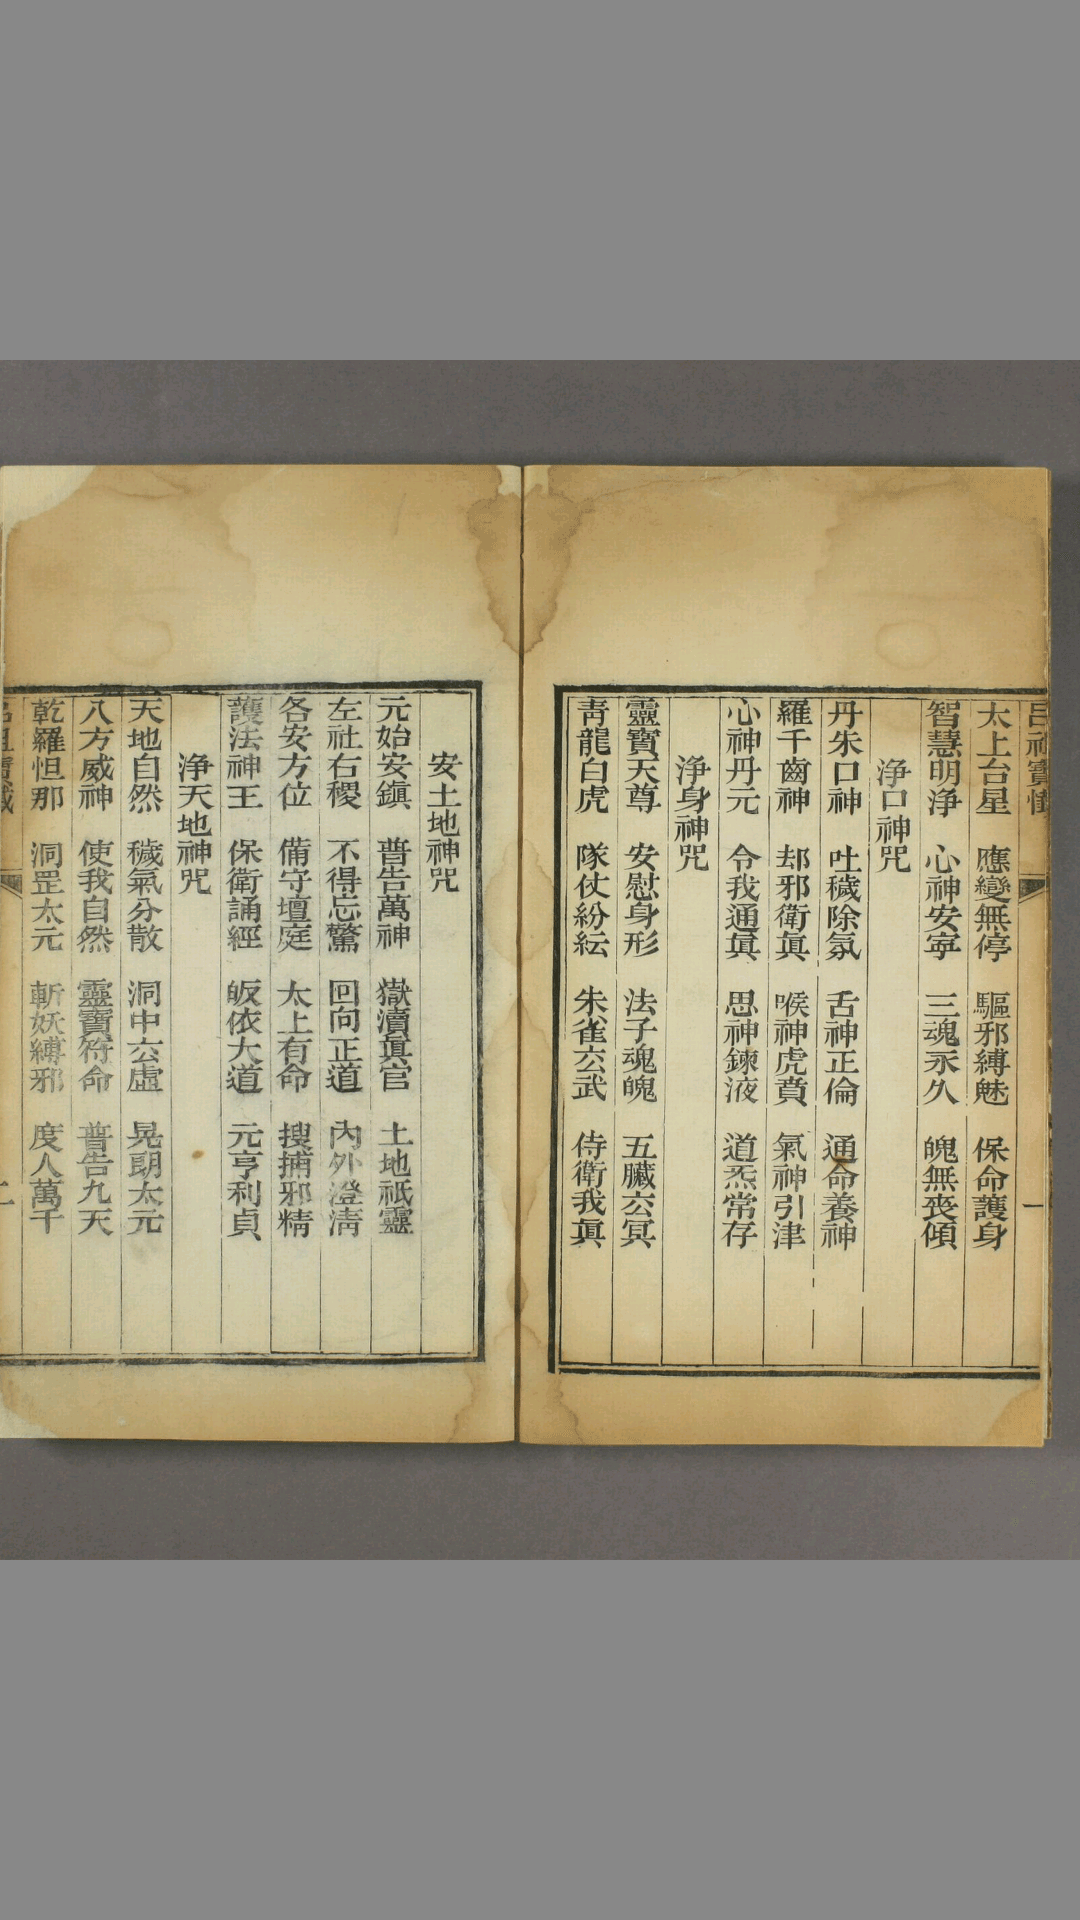 呂祖寶懺
一
太上台星　應變無停　驅邪縛魅　保命護身
智慧明浄　心神安寜　三魂永久　魄無喪傾
浄口神咒
丹朱口神　吐穢除氛　舌神正倫　通命養神
羅千齒神　却邪衛眞　喉神虎賁　氣神引津
心神丹元　令我通眞　思神鍊液　道炁常存
浄身神咒
靈寶天尊　安慰身形　法子魂魄　五臟玄冥
青龍白虎　隊仗紛紜　朱雀玄武　侍衛我眞
安土地神咒
元始安鎭　普告萬神　嶽瀆眞官　土地祇靈
左社右稷　不得忘驚　回向正道　內外澄清
各安方位　備守壇庭　太上有命　搜捕邪精
護法神王　保衛誦經　皈依大道　元亨利貞
浄天地神咒
天地自然　穢氣分散　洞中玄虛　晃朗太元
八方威神　使我自然　靈寶符命　普告九天
乾羅怛那　洞罡太元　斬妖縛邪　度人萬千
呂祖寶懺
二